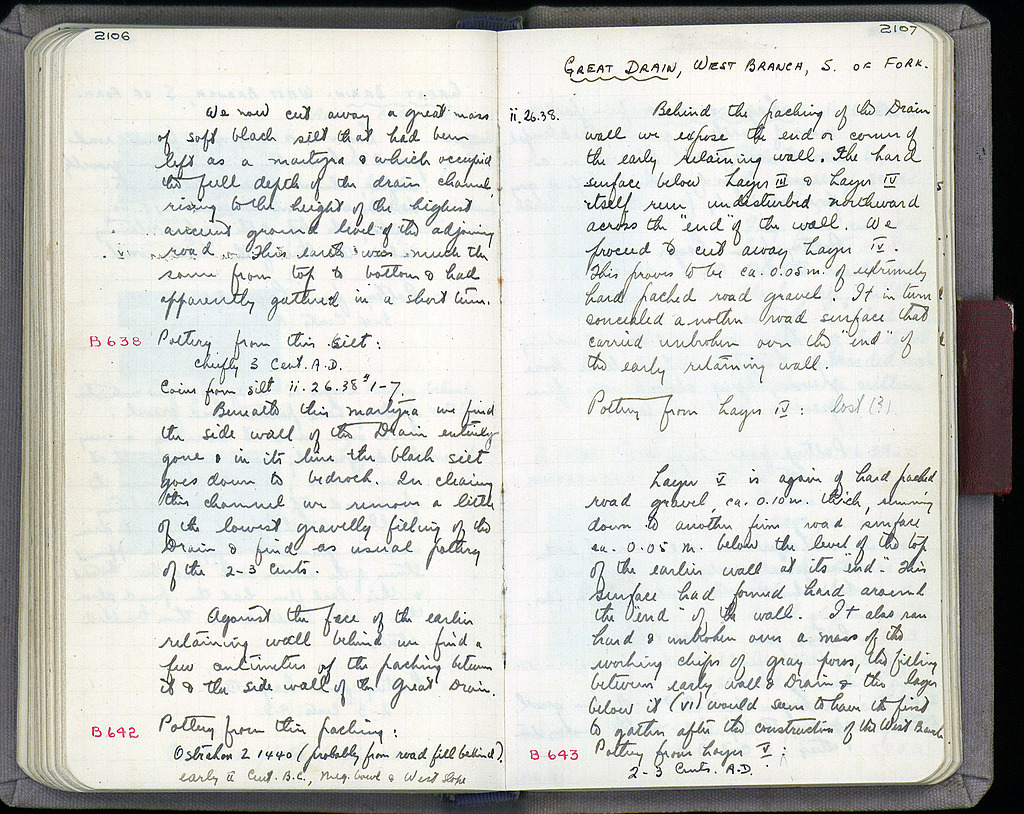 2106
We now cut away a great mass
of soft black silt that had been
left as a martyra & which occupied
the full depth of the drain channel,
rising to the height of the highest
ancient ground level of the adjoining
road. This earth was much the
same from top to bottom & had
apparently gathered in a short time.
B 638 Pottery from this silt:
chiefly 3 Cent. A.D.
Coins from silt ii.26.38 #1-7
Beneath this martyra we find
the side wall of the Drain entirely
gone & in its line the black silt
goes down to bedrock. In clearing
this channel we remove a little
of the lowest gravelly filling of the
Drain & find as usual pottery
of the 2-3 Cents.
Against the face of the earlier
retaining wall behind we find a
few centimeters of the packing between
it & the side wall of the Great Drain.
B 642 Pottery from this packing:
Ostrakon 2 1440 (probably from road fill behind).
early II Cent. B.C., Meg. bowl & West Slope
2107
GREAT DRAIN, WEST BRANCH, S. OF FORK.
ii.26.38. Behind the packing of the Drain
wall we expose the end or corner of
the early retaining wall. The hard
surface below Layer III & Layer IV
itself run undisturbed northward
across the "end" of the wall. We
proceed to cut away Layer IV.
This proves to be ca. 0.05 m. of extremely
hard packed road gravel. It in turn
concealed another road surface that
carried unbroken over the "end" of
the early retaining wall.
Pottery from Layer IV: lost (?)
Layer V is again of hard packed
road gravel, ca. 0.10 m. thick, running
down to another firm road surface
ca. 0.05 m. below the level of the top
of the earlier wall at its "end". This
surface had formed hard around
the "end" of the wall. It also ran
hard & unbroken over a mass of the
working chips of gray poros, the filling
between early wall & Drain & this layer
below it (VI) would seem to have been the first
to gather after the construction of the West Branch
B 643 Pottery from Layer V:
2-3 Cents. A.D.